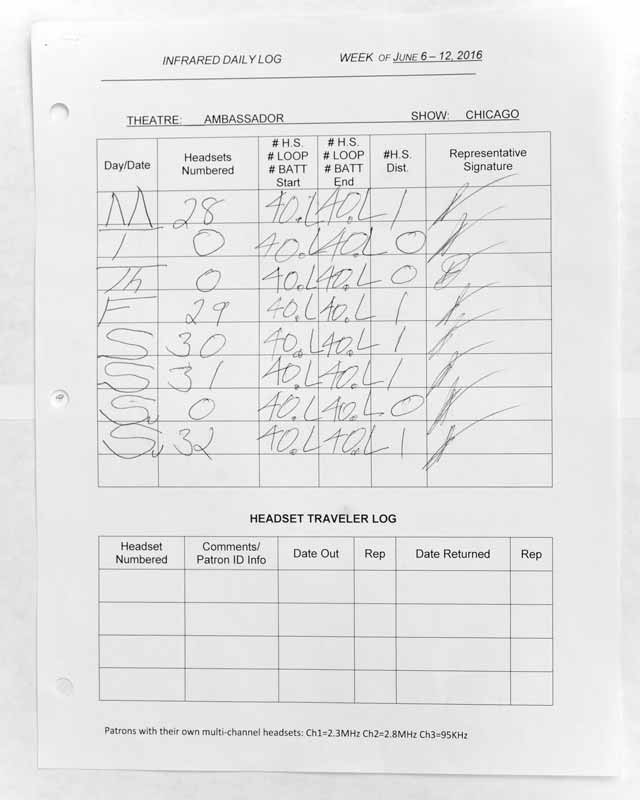 INFRARED DAILY LOG WEEK OF JUNE 6 – 12, 2016
THEATRE: AMBASSADOR SHOW: CHICAGO
Day/Date Headsets Numbered # H.S. # LOOP # BATT Start # H.S. # LOOP # BATT End #H.S. Dist. Representative Signature
M 28 40.L 40.L 1
T 0 40.L 40.L 0
Th 0 40.L 40.L 0
F 29 40.L 40.L 1
S 30 40.L 40.L 1
S 31 40.L 40.L 1
Su 0 40.L 40.L 0
Su 32 40.L 40.L 1
HEADSET TRAVELER LOG
Headset Numbered Comments/ Patron ID Info Date Out Rep Date Returned Rep
Patrons with their own multi-channel headsets: Ch1=2.3MHz Ch2=2.8MHz Ch3=95KHz